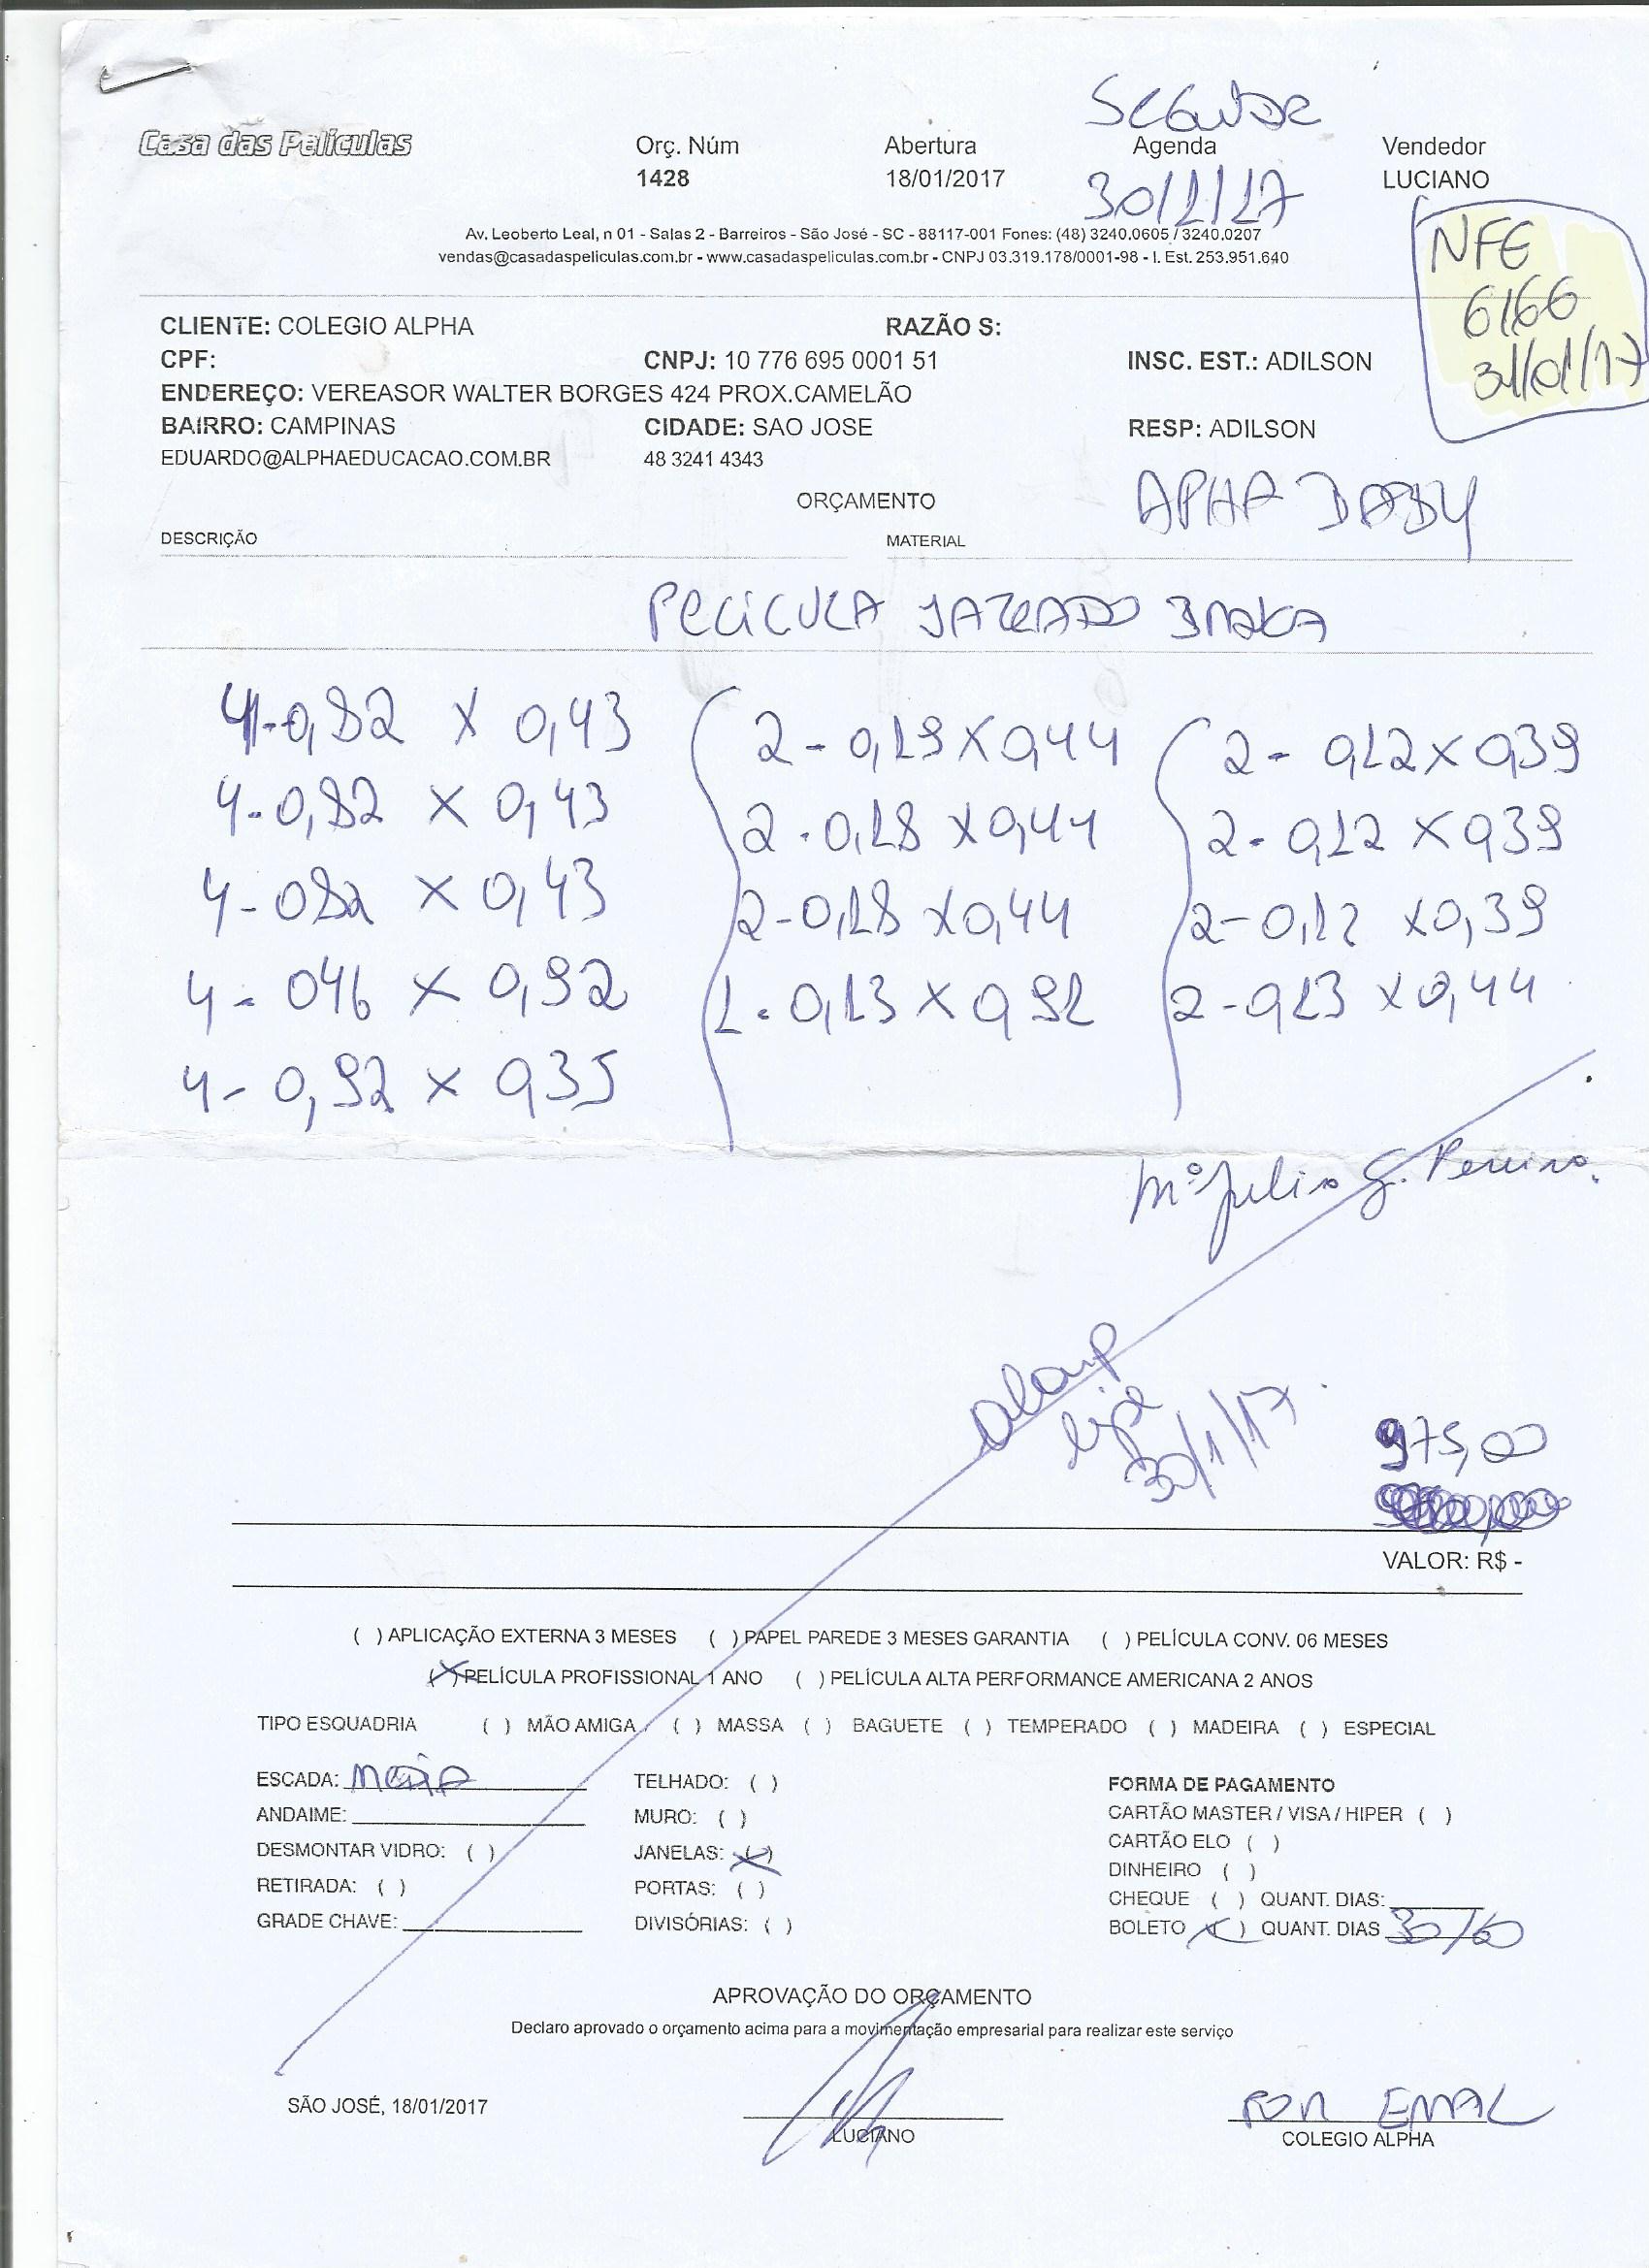 SEGUNDA
Casa das Películas Orç. Núm Abertura Agenda Vendedor
1428 18/01/2017 30/1/17 LUCIANO
Av. Leoberto Leal, n 01 - Salas 2 - Barreiros - São José - SC - 88117-001 Fones: (48) 3240.0605 / 3240.0207
vendas@casadaspeliculas.com.br - www.casadaspeliculas.com.br - CNPJ 03.319.178/0001-98 - I. Est. 253.951.640
NFE
6166
31/01/17
CLIENTE: COLEGIO ALPHA RAZÃO S:
CPF: CNPJ: 10 776 695 0001 51 INSC. EST.: ADILSON
ENDEREÇO: VEREASOR WALTER BORGES 424 PROX.CAMELÃO
BAIRRO: CAMPINAS CIDADE: SAO JOSE RESP: ADILSON
EDUARDO@ALPHAEDUCACAO.COM.BR 48 3241 4343
ORÇAMENTO APHA BABY
DESCRIÇÃO MATERIAL
PELICULA JATEADO
4-0,82 x 0,43 2-0,19 x 0,44 2-0,12 x 0,39
4-0,82 x 0,43 2-0,18 x 0,44 2-0,12 x 0,39
4-082 x 0,43 2-0,18 x 0,44 2-0,12 x 0,39
4-046 x 0,92 1-0,13 x 0,92 2-0,13 x 0,44
4-0,92 x 0,35
Mª Julia G. Pereira.
30/1/17.
975,00
VALOR: R$ -
( ) APLICAÇÃO EXTERNA 3 MESES ( ) PAPEL PAREDE 3 MESES GARANTIA ( ) PELÍCULA CONV. 06 MESES
(X) PELÍCULA PROFISSIONAL 1 ANO ( ) PELÍCULA ALTA PERFORMANCE AMERICANA 2 ANOS
TIPO ESQUADRIA ( ) MÃO AMIGA ( ) MASSA ( ) BAGUETE ( ) TEMPERADO ( ) MADEIRA ( ) ESPECIAL
ESCADA: TELHADO: ( ) FORMA DE PAGAMENTO
ANDAIME: MURO: ( ) CARTÃO MASTER / VISA / HIPER ( )
DESMONTAR VIDRO: ( ) JANELAS: (X) CARTÃO ELO ( )
DINHEIRO ( )
RETIRADA: ( ) PORTAS: ( ) CHEQUE ( ) QUANT. DIAS:
GRADE CHAVE: DIVISÓRIAS: ( ) BOLETO (X) QUANT. DIAS 30/60
APROVAÇÃO DO ORÇAMENTO
Declaro aprovado o orçamento acima para a movimentação empresarial para realizar este serviço
SÃO JOSÉ, 18/01/2017 POR EMAIL
LUCIANO COLEGIO ALPHA